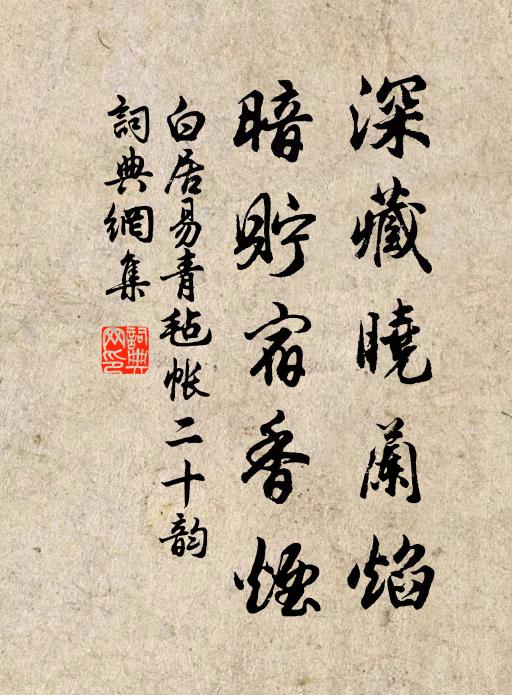 深藏曉蘭焰
暗貯宿香煙
白居易青毡帐二十韵
詞典網集
詞典网印